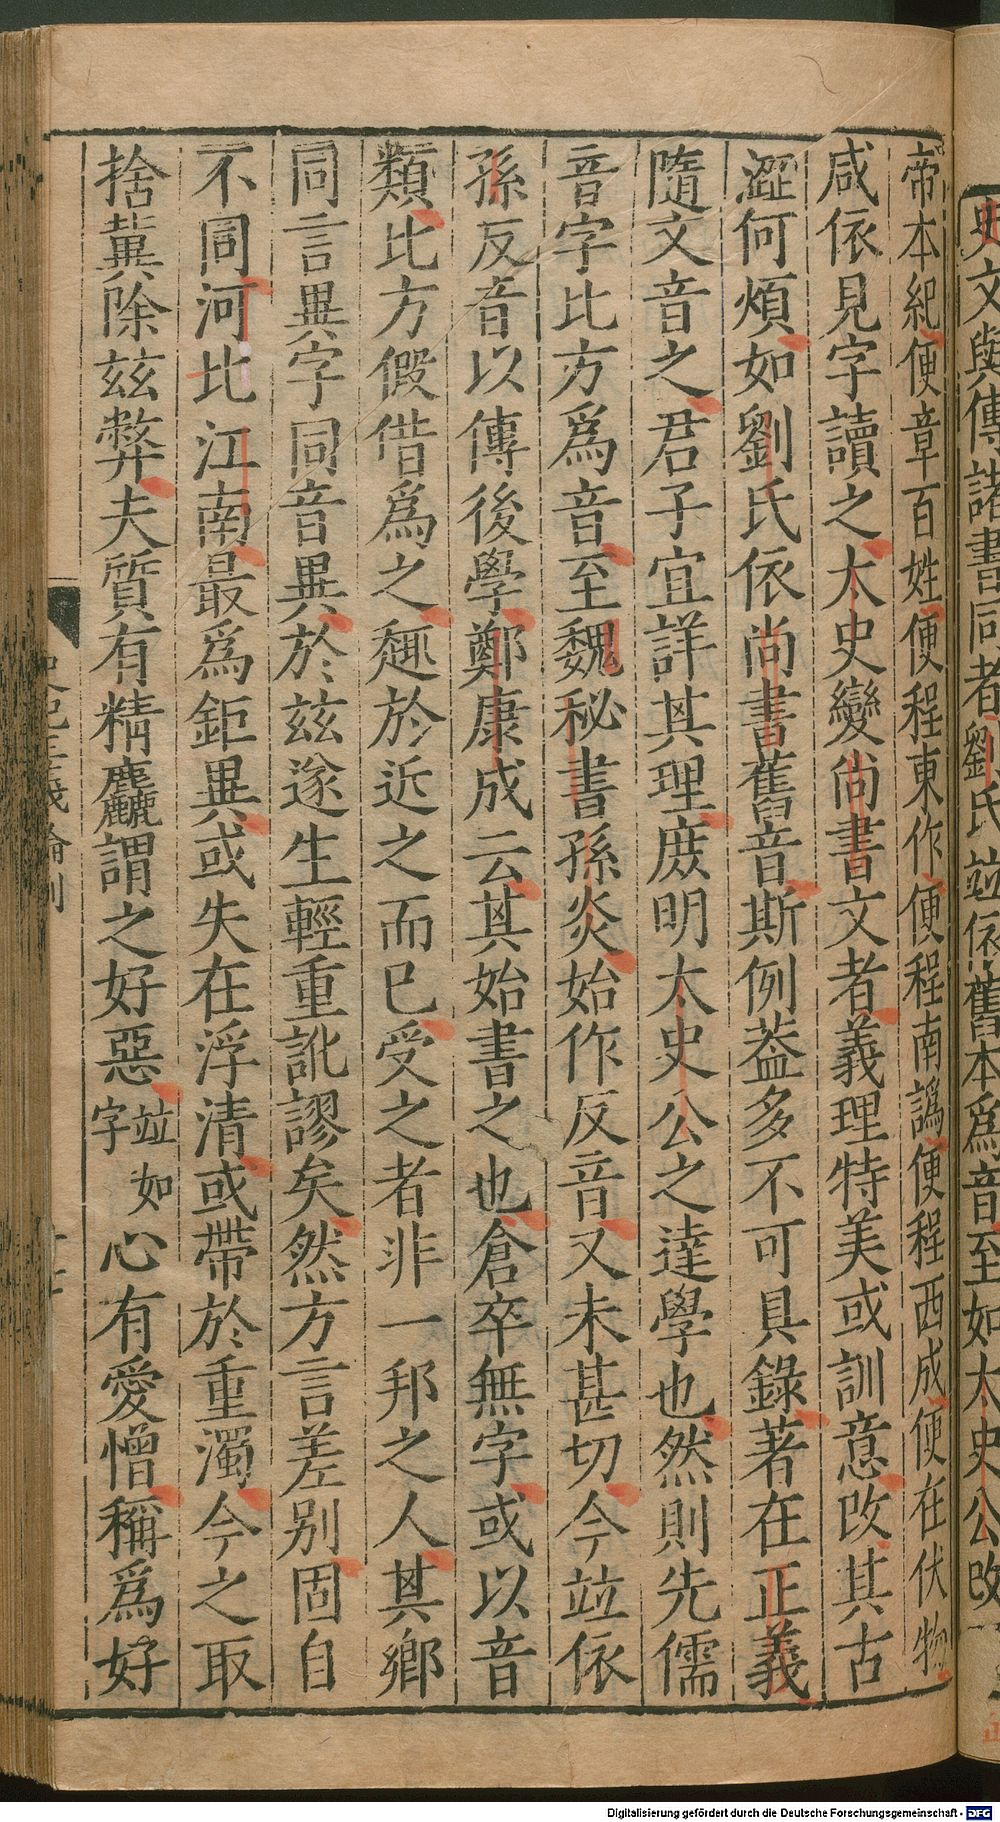 史文與傳諸書同者劉氏竝依舊本爲音至如太史公改
帝本紀便章百姓便程東作便程南譌便程西成便在伏物
咸依見字讀之太史變尚書文者義理特美或訓意改其古
澀何煩如劉氏依尚書舊音斯例葢多不可具錄著在正義
隨文音之君子宜詳其理庻明太史公之達學也然則先儒
音字比方爲音至魏秘書孫炎始作反音又未甚切今竝依
孫反音以傳後學鄭康成云其始書之也倉卒無字或以音
類比方假借爲之趣於近之而已受之者非一邦之人其鄉
同言異字同音異於兹遂生輕重訛謬矣然方言差别固自
不同河北江南最爲鉅異或失在浮清或帶於重濁今之取
捨冀除兹弊夫質有精麤謂之好惡竝如字心有愛憎稱爲好
Digitalisierung gefördert durch die Deutsche Forschungsgemeinschaft - DFG